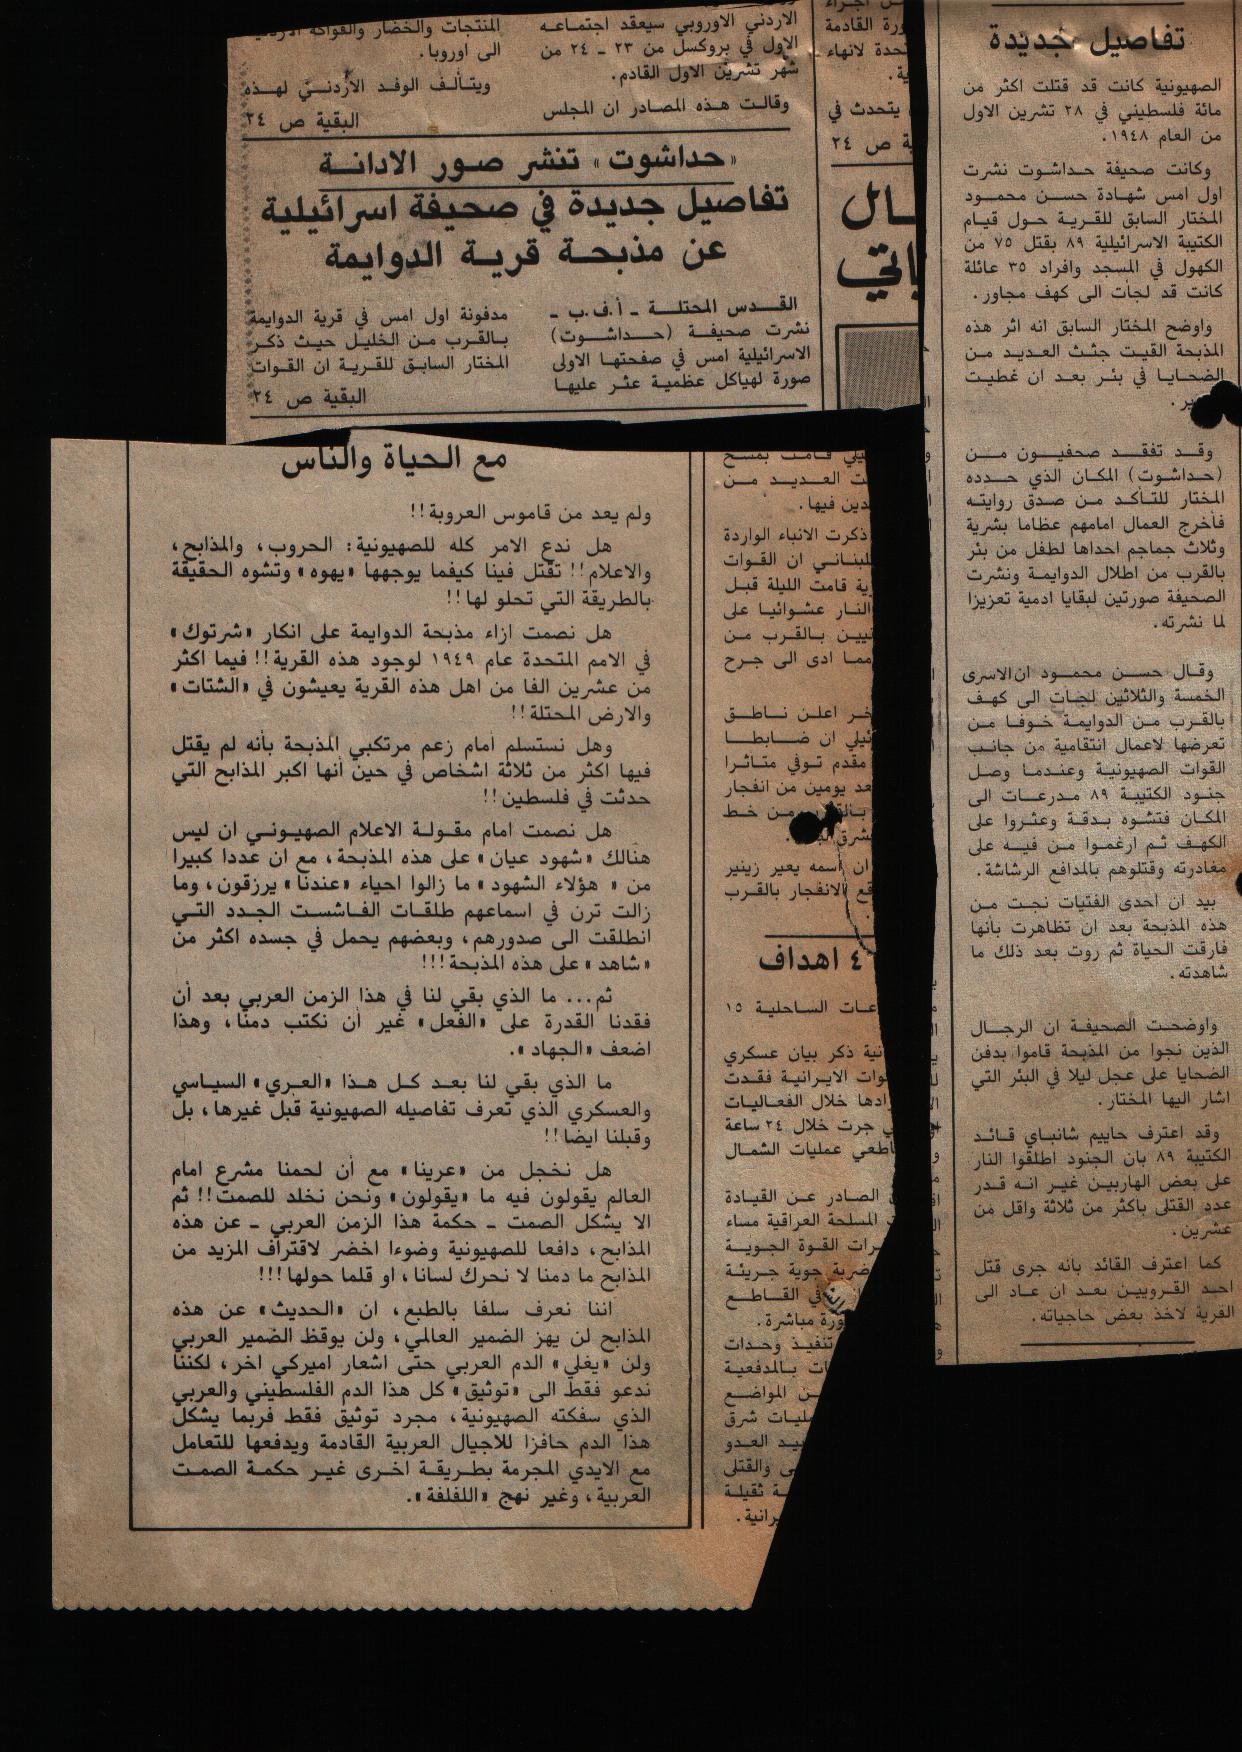 الاردني الاوروبي سيعقد اجتماعه
الاول في بروكسل من ٢٣ - ٢٤ من
شهر تشرين الاول القادم.
وقالت هذه المصادر ان المجلس
المنتجات والخضار والفواكه
الى اوروبا.
ويتألف الوفد الأردني لهذه
البقية ص ٢٤
«حداشوت» تنشر صور الادانة
تفاصيل جديدة في صحيفة اسرائيلية
عن مذبحة قرية الدوايمة
القدس المحتلة - أ.ف.ب -
نشرت صحيفة (حداشوت)
الاسرائيلية امس في صفحتها الاولى
صورة لهياكل عظمية عثر عليها
مدفونة اول امس في قرية الدوايمة
بالقرب من الخليل حيث ذكر
المختار السابق للقرية ان القوات
البقية ص ٢٤
ورة القادمة
تحدة لانهاء
ية.
يتحدث في
ة ص ٢٤
تفاصيل جديدة
الصهيونية كانت قد قتلت اكثر من
مائة فلسطيني في ٢٨ تشرين الاول
من العام ١٩٤٨.
وكانت صحيفة حداشوت نشرت
اول امس شهادة حسن محمود
المختار السابق للقرية حول قيام
الكتيبة الاسرائيلية ٨٩ بقتل ٧٥ من
الكهول في المسجد وافراد ٣٥ عائلة
كانت قد لجأت الى كهف مجاور.
واوضح المختار السابق انه اثر هذه
المذبحة القيت جثث العديد من
الضحايا في بئر بعد ان غطيت
وقد تفقد صحفيون من
(حداشوت) المكان الذي حدده
المختار للتأكد من صدق روايته
فأخرج العمال امامهم عظاما بشرية
وثلاث جماجم احداها لطفل من بئر
بالقرب من اطلال الدوايمة ونشرت
الصحيفة صورتين لبقايا ادمية تعزيزا
لما نشرته.
وقال حسن محمود ان الاسرى
الخمسة والثلاثين لجأت الى كهف
بالقرب من الدوايمة خوفا من
تعرضها لاعمال انتقامية من جانب
القوات الصهيونية وعندما وصل
جنود الكتيبة ٨٩ مدرعات الى
المكان فتشوه بدقة وعثروا على
الكهف ثم ارغموا من فيه على
مغادرته وقتلوهم بالمدافع الرشاشة.
بيد ان احدى الفتيات نجت من
هذه المذبحة بعد ان تظاهرت بأنها
فارقت الحياة ثم روت بعد ذلك ما
شاهدته.
واوضحت الصحيفة ان الرجال
الذين نجوا من المذبحة قاموا بدفن
الضحايا على عجل ليلا في البئر التي
اشار اليها المختار.
وقد اعترف حاييم شانباي قائد
الكتيبة ٨٩ بان الجنود اطلقوا النار
على بعض الهاربين غير انه قدر
عدد القتلى باكثر من ثلاثة واقل من
عشرين.
كما اعترف القائد بانه جرى قتل
احد القرويين بعد ان عاد الى
القرية لاخذ بعض حاجياته.
مع الحياة والناس
ولم يعد من قاموس العروبة!!
هل ندع الامر كله للصهيونية: الحروب، والمذابح،
والاعلام!! تقتل فينا كيفما يوجهها «يهوه» وتشوه الحقيقة
بالطريقة التي تحلو لها!!
هل نصمت ازاء مذبحة الدوايمة على انكار «شرتوك»
في الامم المتحدة عام ١٩٤٩ لوجود هذه القرية!! فيما اكثر
من عشرين الفا من اهل هذه القرية يعيشون في «الشتات»
والارض المحتلة!!
وهل نستسلم أمام زعم مرتكبي المذبحة بأنه لم يقتل
فيها اكثر من ثلاثة اشخاص في حين أنها اكبر المذابح التي
حدثت في فلسطين!!
هل نصمت امام مقولة الاعلام الصهيوني ان ليس
هنالك «شهود عيان» على هذه المذبحة، مع ان عددا كبيرا
من «هؤلاء الشهود» ما زالوا احياء «عندنا» يرزقون، وما
زالت ترن في اسماعهم طلقات الفاشست الجدد التي
انطلقت الى صدورهم، وبعضهم يحمل في جسده اكثر من
«شاهد» على هذه المذبحة!!!
ثم... ما الذي بقي لنا في هذا الزمن العربي بعد أن
فقدنا القدرة على «الفعل» غير أن نكتب دمنا، وهذا
اضعف «الجهاد».
ما الذي بقي لنا بعد كل هذا «العري» السياسي
والعسكري الذي تعرف تفاصيله الصهيونية قبل غيرها، بل
وقبلنا ايضا!!
هل نخجل من «عرينا» مع أن لحمنا مشرع امام
العالم يقولون فيه ما «يقولون» ونحن نخلد للصمت!! ثم
الا يشكل الصمت - حكمة هذا الزمن العربي - عن هذه
المذابح، دافعا للصهيونية وضوءا اخضر لاقتراف المزيد من
المذابح ما دمنا لا نحرك لسانا، او قلما حولها!!!
اننا نعرف سلفا بالطبع، ان «الحديث» عن هذه
المذابح لن يهز الضمير العالمي، ولن يوقظ الضمير العربي
ولن «يغلي» الدم العربي حتى اشعار اميركي اخر، لكننا
ندعو فقط الى «توثيق» كل هذا الدم الفلسطيني والعربي
الذي سفكته الصهيونية، مجرد توثيق فقط فربما يشكل
هذا الدم حافزا للاجيال العربية القادمة ويدفعها للتعامل
مع الايدي المجرمة بطريقة اخرى غير حكمة الصمت
العربية، وغير نهج «اللفلفة».
ت العديد من
دين فيها.
ذكرت الانباء الواردة
للبناني ان القوات
ية قامت الليلة قبل
النار عشوائيا على
نيين بالقرب من
مما ادى الى جرح
خر اعلن ناطق
ئيلي ان ضابطا
مقدم توفي متاثرا
عد يومين من انفجار
من خط
ان اسمه يعير زينير
قع الانفجار بالقرب
٤ اهداف
عات الساحلية ١٥
نية ذكر بيان عسكري
وات الايرانية فقدت
رادها خلال الفعاليات
ي جرت خلال ٢٤ ساعة
اطعي عمليات الشمال
الصادر عن القيادة
المسلحة العراقية مساء
رات القوة الجوية
ضربة جوية جريئة
في القاطع
ورة مباشرة.
تنفيذ وحدات
ت بالمدفعية
ن المواضع
مليات شرق
بيد العدو
ى والقتلى
ة ثقيلة
يرانية.